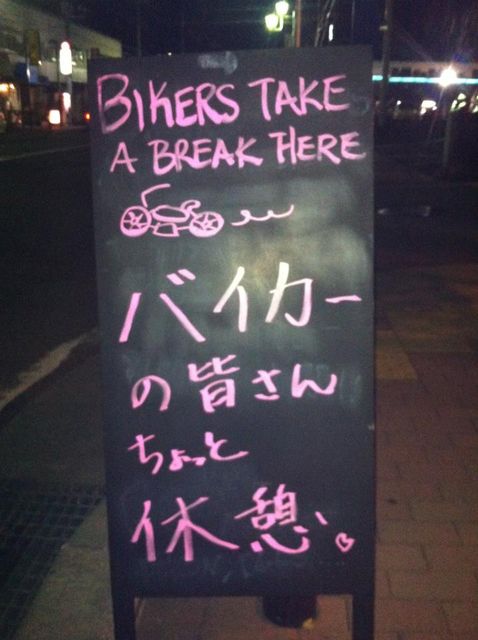 BIKERS TAKE
A BREAK HERE
バイカー
の皆さん
ちょっと
休憩